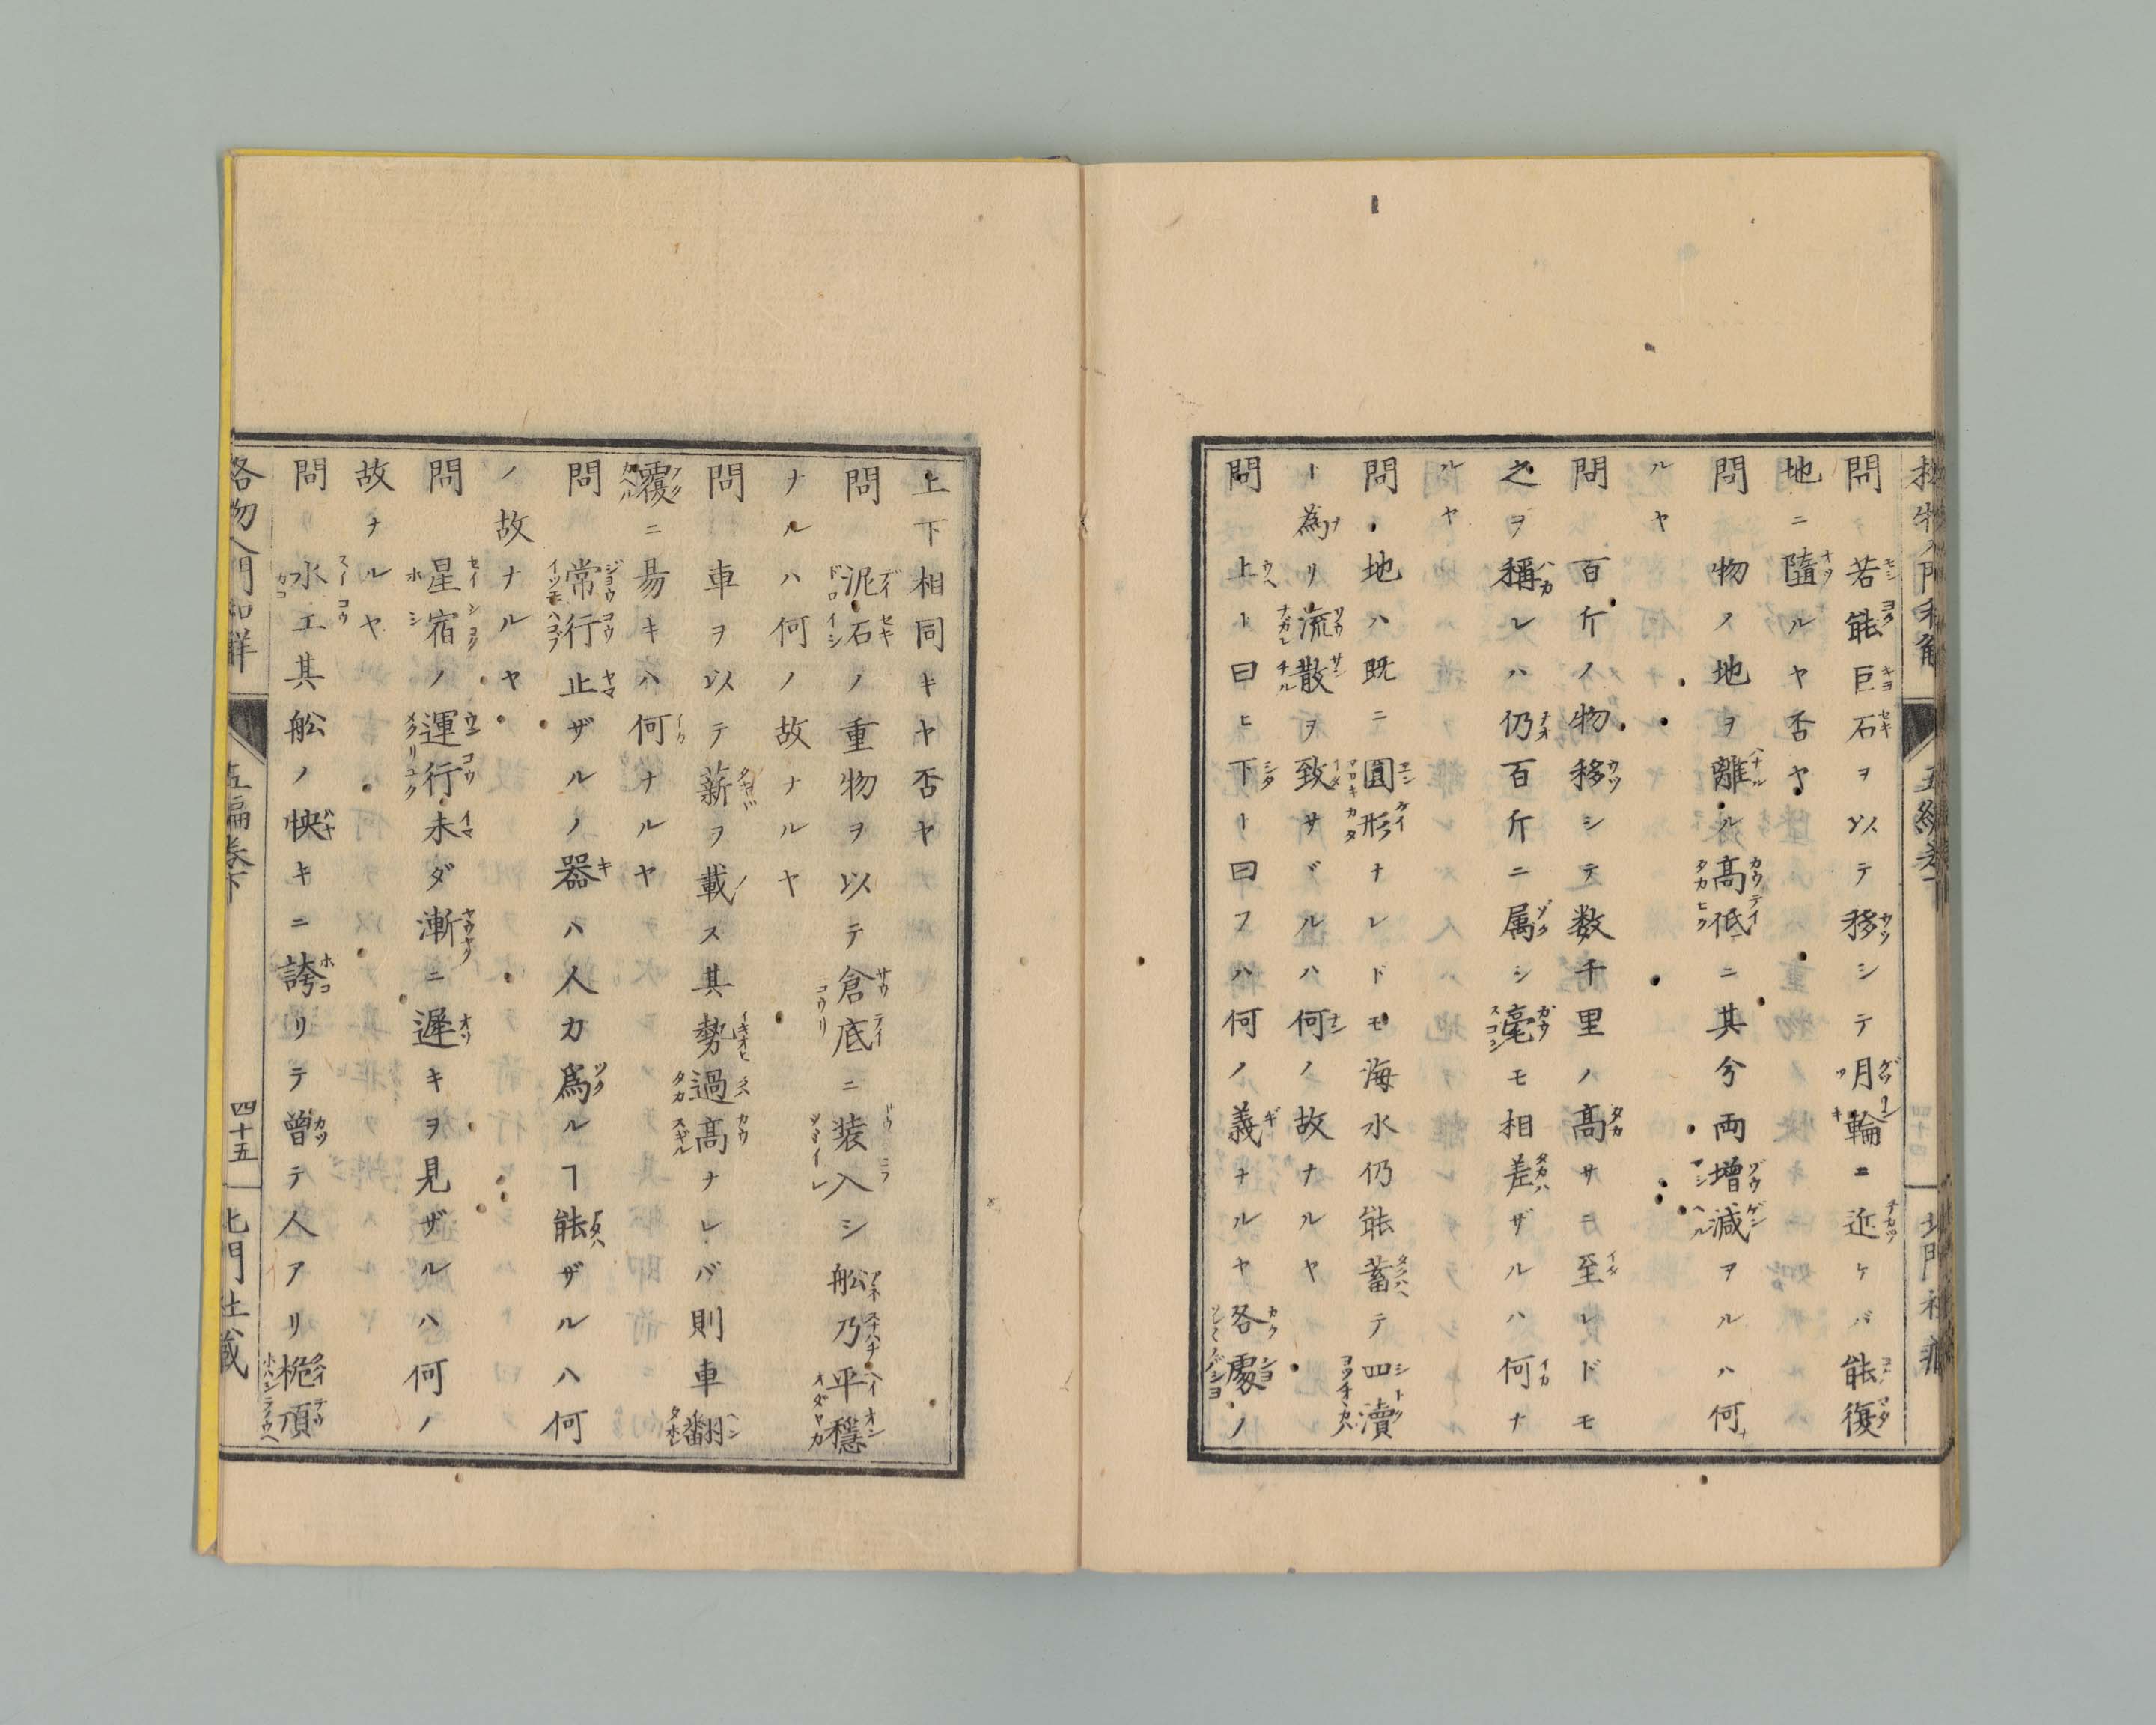 問 若能巨石ヲ以テ移シテ月輪ニ近ケバ能復
地ニ隨ルヤ否ヤ
問 物ノ地ヲ離ル高低ニ其分両増減アルハ何
ルヤ
問 百斤ノ物移シテ数千里ノ高サニ至レドモ
之ヲ稱レハ仍百斤ニ属シ毫モ相差ザルハ何ナ
ルヤ
問 地ハ既ニ圓形ナレドモ海水仍能蓄テ四瀆
ト為リ流散ヲ致サヾルハ何ノ故ナルヤ
問 上ト曰ヒ下ト曰フハ何ノ義ナルヤ各處ノ
上下相同キヤ否ヤ
問 泥石ノ重物ヲ以テ倉底ニ装入シ舩乃平穩
ナルハ何ノ故ナルヤ
問 車ヲ以テ薪ヲ載ス其勢過高ナレバ則車翻
覆ニ易キハ何ナルヤ
問 常行止ザルノ器ハ人力為ルヿ能ザルハ何
ノ故ナルヤ
問 星宿ノ運行未ダ漸ニ遲キヲ見ザルハ何ノ
故ナルヤ
問 水工其舩ノ快キニ誇リテ曽テ人アリ桅頂
格物入門和解 五編巻下 四十五 北門社蔵